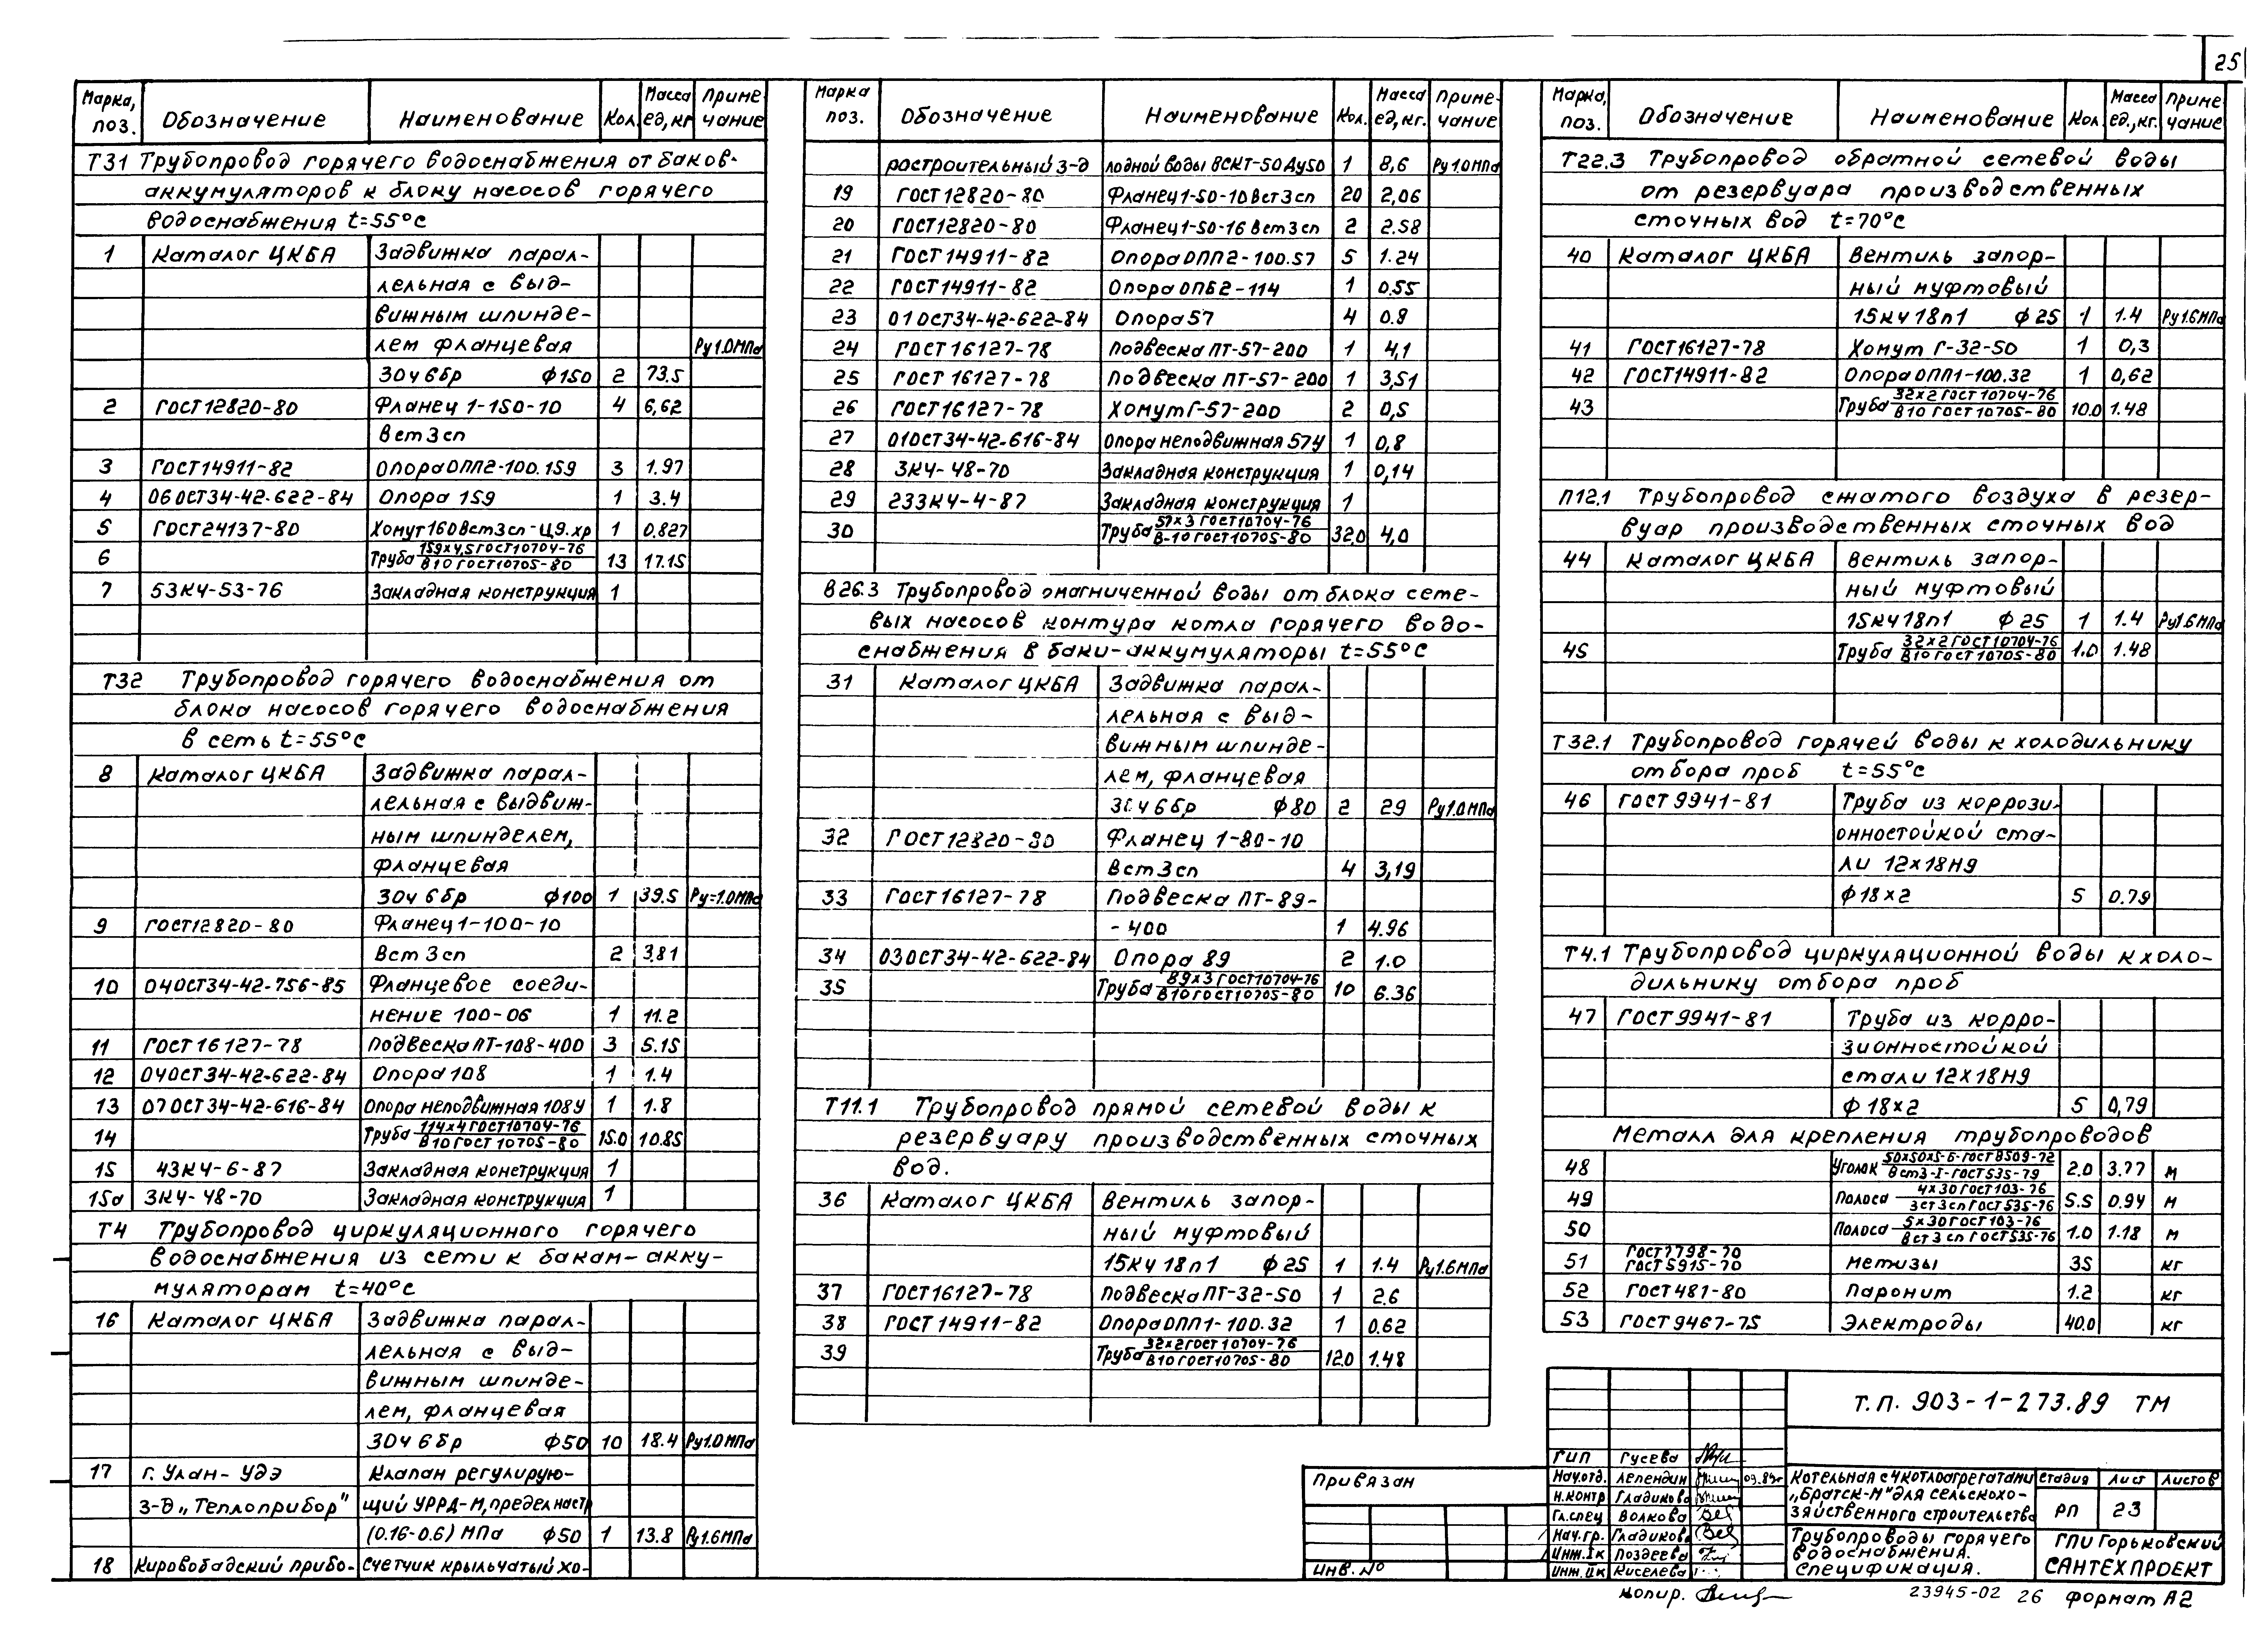 25
Марка, поз. Обозначение Наименование Кол. Масса ед, кг Примечание
Т31 Трубопровод горячего водоснабжения от баков-
аккумуляторов к блоку насосов горячего
водоснабжения t=55°C
1 Каталог ЦКБА Задвижка парал-
лельная с выд-
вижным шпинде-
лем фланцевая Ру1.0МПа
30ч6бр ф150 2 73.5
2 ГОСТ12820-80 Фланец 1-150-10 4 6,62
Вст3сп
3 ГОСТ14911-82 Опора ОПП2-100.159 3 1.97
4 06ОСТ34-42-622-84 Опора 159 1 3.4
5 ГОСТ24137-80 Хомут160Вст3сп-Ц9.хр 1 0.827
6 Труба 159х4,5ГОСТ10704-76 / В10ГОСТ10705-80 13 17.15
7 53К4-53-76 Закладная конструкция 1
Т32 Трубопровод горячего водоснабжения от
блока насосов горячего водоснабжения
в сеть t=55°C
8 Каталог ЦКБА Задвижка парал-
лельная с выдвиж-
ным шпинделем,
фланцевая
30ч6бр ф100 1 39.5 Ру=1.0МПа
9 ГОСТ12820-80 Фланец1-100-10
Вст3сп 2 3.81
10 04ОСТ34-42-756-85 Фланцевое соеди-
нение 100-06 1 11.2
11 ГОСТ16127-78 Подвеска ПТ-108-400 3 5.15
12 04ОСТ34-42-622-84 Опора 108 1 1.4
13 07ОСТ34-42-616-84 Опора неподвижная 108У 1 1.8
14 Труба 114х4ГОСТ10704-76 / В10ГОСТ10705-80 15.0 10.85
15 43К4-6-87 Закладная конструкция 1
15а 3К4-48-70 Закладная конструкция 1
Т4 Трубопровод циркуляционного горячего
водоснабжения из сети к бакам-акку-
муляторам t=40°C
16 Каталог ЦКБА Задвижка парал-
лельная с выд-
вижным шпинде-
лем, фланцевая
30ч6бр ф50 10 18.4 Ру1.0МПа
17 г. Улан-Удэ Клапан регулирую-
з-д „Теплоприбор" щий УРРД-М, предел настр
(0.16-0.6) МПа ф50 1 13.8 Ру1.6МПа
18 Кировобадский прибо- Счетчик крыльчатый хо-
Марка поз. Обозначение Наименование Кол. Масса ед, кг. Примечание
ростроительный з-д лодной воды ВСКТ-50 Ду50 1 8,6 Ру1.0МПа
19 ГОСТ12820-80 Фланец1-50-10Вст3сп 20 2,06
20 ГОСТ12820-80 Фланец1-50-16 Вст3сп 2 2.58
21 ГОСТ14911-82 Опора ОПП2-100.57 5 1.24
22 ГОСТ14911-82 Опора ОПБ2-114 1 0.55
23 01ОСТ34-42-622-84 Опора 57 4 0.8
24 ГОСТ16127-78 Подвеска ПТ-57-200 1 4,1
25 ГОСТ16127-78 Подвеска ПТ-57-200 1 3,51
26 ГОСТ16127-78 Хомут Г-57-200 2 0,5
27 01ОСТ34-42-616-84 Опора неподвижная 57У 1 0,8
28 3К4-48-70 Закладная конструкция 1 0,14
29 233К4-4-87 Закладная конструкция 1
30 Труба 57х3 ГОСТ10704-76 / В-10 ГОСТ10705-80 32.0 4,0
В26.3 Трубопровод омагниченной воды от блока сете-
вых насосов контура котла горячего водо-
снабжения в баки-аккумуляторы t=55°C
31 Каталог ЦКБА Задвижка парал-
лельная с выд-
вижным шпинде-
лем, фланцевая
30ч6бр ф80 2 29 Ру1.0МПа
32 ГОСТ12820-80 Фланец 1-80-10
Вст3сп 4 3,19
33 ГОСТ16127-78 Подвеска ПТ-89-
-400 1 4.96
34 03ОСТ34-42-622-84 Опора 89 2 1.0
35 Труба 89х3 ГОСТ10704-76 / В10ГОСТ10705-80 10 6.36
Т11.1 Трубопровод прямой сетевой воды к
резервуару производственных сточных
вод.
36 Каталог ЦКБА Вентиль запор-
ный муфтовый
15кч18п1 ф25 1 1.4 Ру1.6МПа
37 ГОСТ16127-78 Подвеска ПТ-32-50 1 2.6
38 ГОСТ14911-82 Опора ОПП1-100.32 1 0.62
39 Труба 32х2ГОСТ10704-76 / В10ГОСТ10705-80 12.0 1.48
Марка, поз. Обозначение Наименование Кол. Масса ед., кг. Примечание
Т22.3 Трубопровод обратной сетевой воды
от резервуара производственных
сточных вод t=70°C
40 Каталог ЦКБА Вентиль запор-
ный муфтовый
15кч18п1 ф25 1 1.4 Ру1.6МПа
41 ГОСТ16127-78 Хомут Г-32-50 1 0,3
42 ГОСТ14911-82 Опора ОПП1-100.32 1 0,62
43 Труба 32х2 ГОСТ10704-76 / В10 ГОСТ10705-80 10.0 1.48
П12.1 Трубопровод сжатого воздуха в резер-
вуар производственных сточных вод
44 Каталог ЦКБА Вентиль запор-
ный муфтовый
15кч18п1 ф25 1 1.4 Ру1.6МПа
45 Труба 32х2ГОСТ10704-76 / В10ГОСТ10705-80 1.0 1.48
Т32.1 Трубопровод горячей воды к холодильнику
отбора проб t=55°C
46 ГОСТ9941-81 Труба из коррози-
онностойкой ста-
ли 12х18Н9
ф18х2 5 0.79
Т4.1 Трубопровод циркуляционной воды к холо-
дильнику отбора проб
47 ГОСТ9941-81 Труба из корро-
зионностойкой
стали 12х18Н9
ф18х2 5 0,79
Металл для крепления трубопроводов
48 Уголок 50х50х5-Б-ГОСТ8509-72 / Вст3-I-ГОСТ535-79 2.0 3.77 м
49 Полоса 4х30ГОСТ103-76 / 3ст3сп ГОСТ535-76 5.5 0.94 м
50 Полоса 5х30ГОСТ103-76 / Вст3сп ГОСТ535-76 1.0 1.18 м
51 ГОСТ7798-70 ГОСТ5915-70 Метизы 35 кг
52 ГОСТ481-80 Паронит 1.2 кг
53 ГОСТ9467-75 Электроды 40.0 кг
Т.П. 903-1-273.89 ТМ
Привязан
Инв. №
ГИП Гусева
Нач.отд. Лепендин 09.89г
Н.контр Гладикова
Гл.спец Волкова
Нач.гр. Гладикова
Инж.Iк Поздеева
Инж.IIк Киселева
Котельная с 4 котлоагрегатами
„Братск-М" для сельскохо-
зяйственного строительства
Стадия Лист Листов
РП 23
Трубопроводы горячего
водоснабжения.
Спецификация.
ГПИ Горьковский
САНТЕХПРОЕКТ
Копир.
23945-02 26 Формат А2